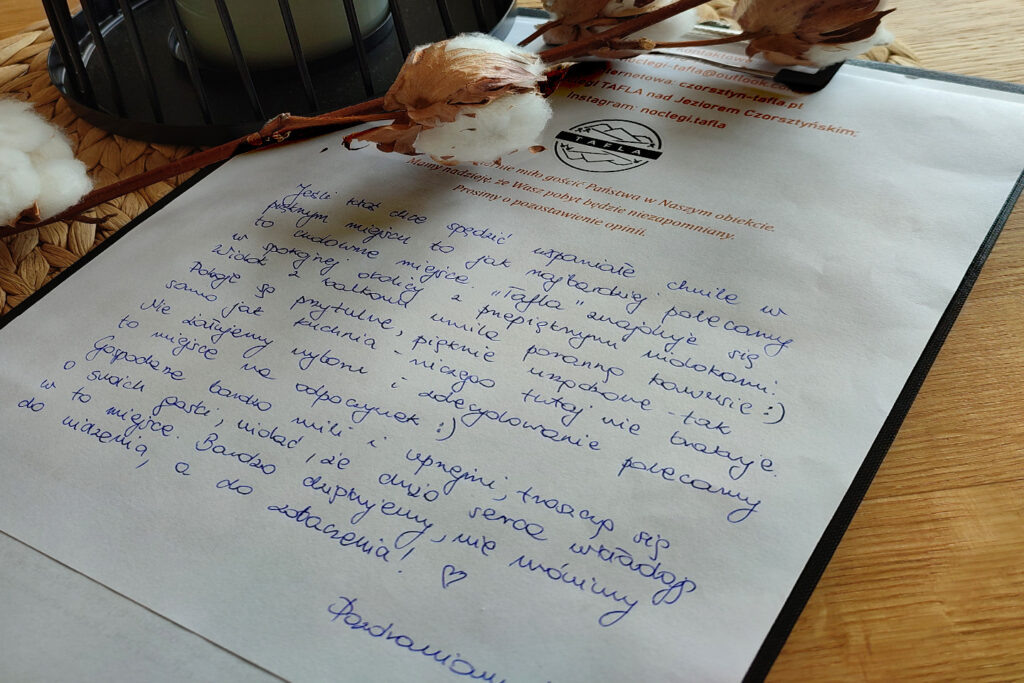 noclegi-tafla@outlook.com
czorsztyn-tafla.pl
TAFLA nad Jeziorem Czorsztyńskim;
Instagram: noclegi.tafla
TAFLA
miło gościć Państwa w Naszym obiekcie.
Mamy nadzieję, że Wasz pobyt będzie niezapomniany.
Prosimy o pozostawienie opinii.
Jeśli ktoś chce spędzić wspaniałe chwile w
pięknym miejscu to jak najbardziej polecamy
to cudowne miejsce. "Tafla" znajduje się
w spokojnej okolicy z przepięknymi widokami.
Widok z balkonu umila poranną kawusię :)
Pokoje są przytulne, pięknie urządzone - tak
samo jak kuchnia - niczego tutaj nie brakuje.
Nie żałujemy wyboru i zdecydowanie polecamy
to miejsce na odpoczynek :)
Gospodarze bardzo mili i uprzejmi, troszczą się
o swoich gości, widać, że dużo serca wkładają
w to miejsce. Bardzo dziękujemy, nie mówimy
do widzenia, a do zobaczenia! ♡
Pozdrawiamy